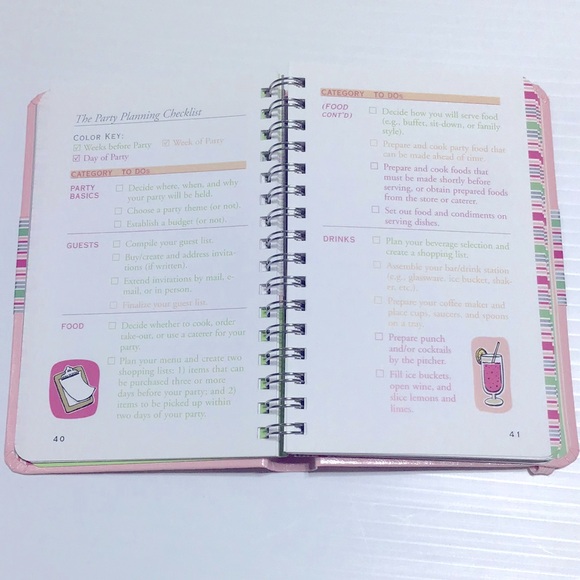 The Party Planning Checklist
COLOR KEY:
☑ Weeks before Party ☑ Week of Party
☑ Day of Party
CATEGORY TO DOs
PARTY BASICS
☐ Decide where, when, and why
your party will be held.
☐ Choose a party theme (or not).
☐ Establish a budget (or not).
GUESTS
☐ Compile your guest list.
☐ Buy/create and address invita-
tions (if written).
☐ Extend invitations by mail, e-
mail, or in person.
☐ Finalize your guest list.
FOOD
☐ Decide whether to cook, order
take-out, or use a caterer for your
party.
☐ Plan your menu and create two
shopping lists: 1) items that can
be purchased three or more
days before your party; and 2)
items to be picked up within
two days of your party.
40
CATEGORY TO DOs
(FOOD CONT'D)
☐ Decide how you will serve food
(e.g., buffet, sit-down, or family
style).
☐ Prepare and cook party food that
can be made ahead of time.
☐ Prepare and cook foods that
must be made shortly before
serving, or obtain prepared foods
from the store or caterer.
☐ Set out food and condiments on
serving dishes.
DRINKS
☐ Plan your beverage selection and
create a shopping list.
☐ Assemble your bar/drink station
(e.g., glassware, ice bucket, shak-
er, etc.).
☐ Prepare your coffee maker and
place cups, saucers, and spoons
on a tray.
☐ Prepare punch
and/or cocktails
by the pitcher.
☐ Fill ice buckets,
open wine, and
slice lemons and
limes.
41